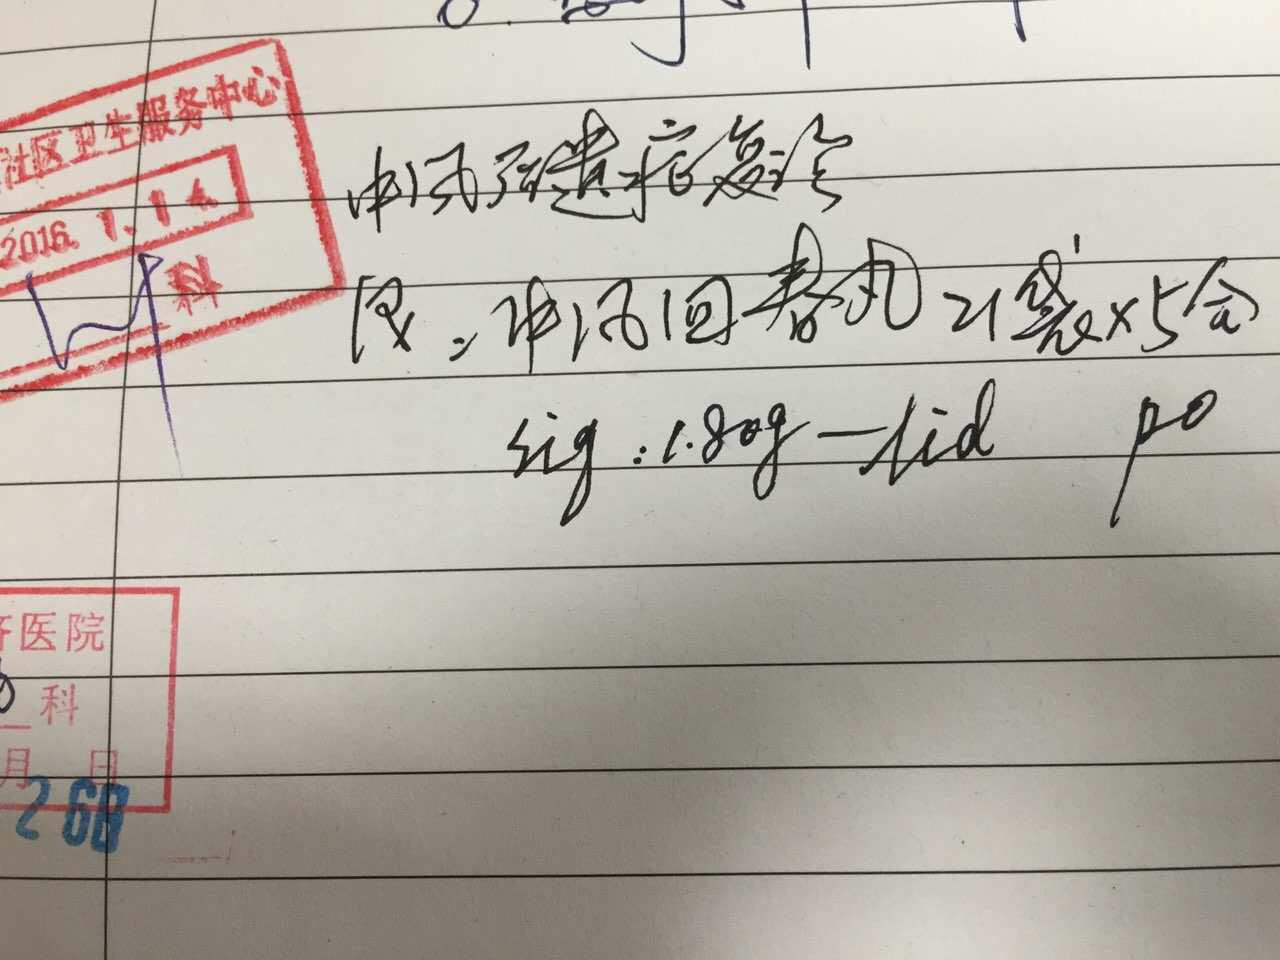 社区卫生服务中心
2016. 1. 14
科
中风后遗症复诊
取:中风回春丸 21袋×5合
sig:1.80g—tid po
医院
科
月 日
2 6日